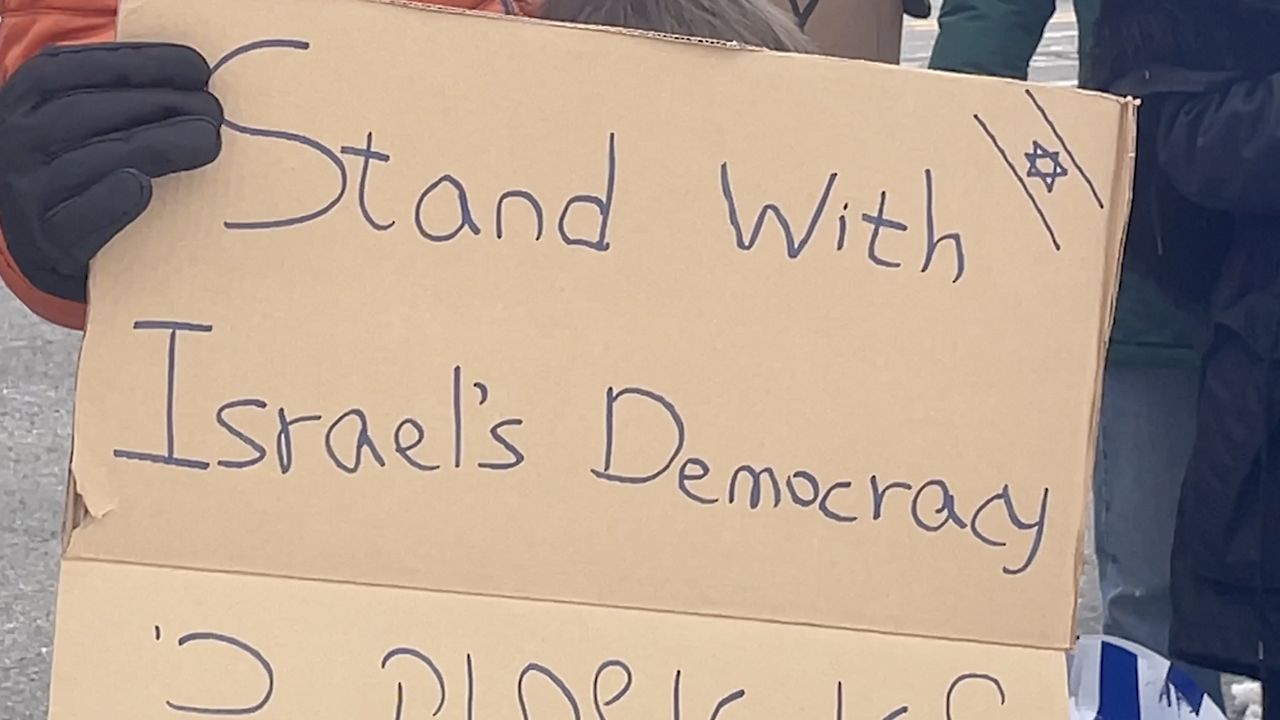 Stand With
Israel's Democracy